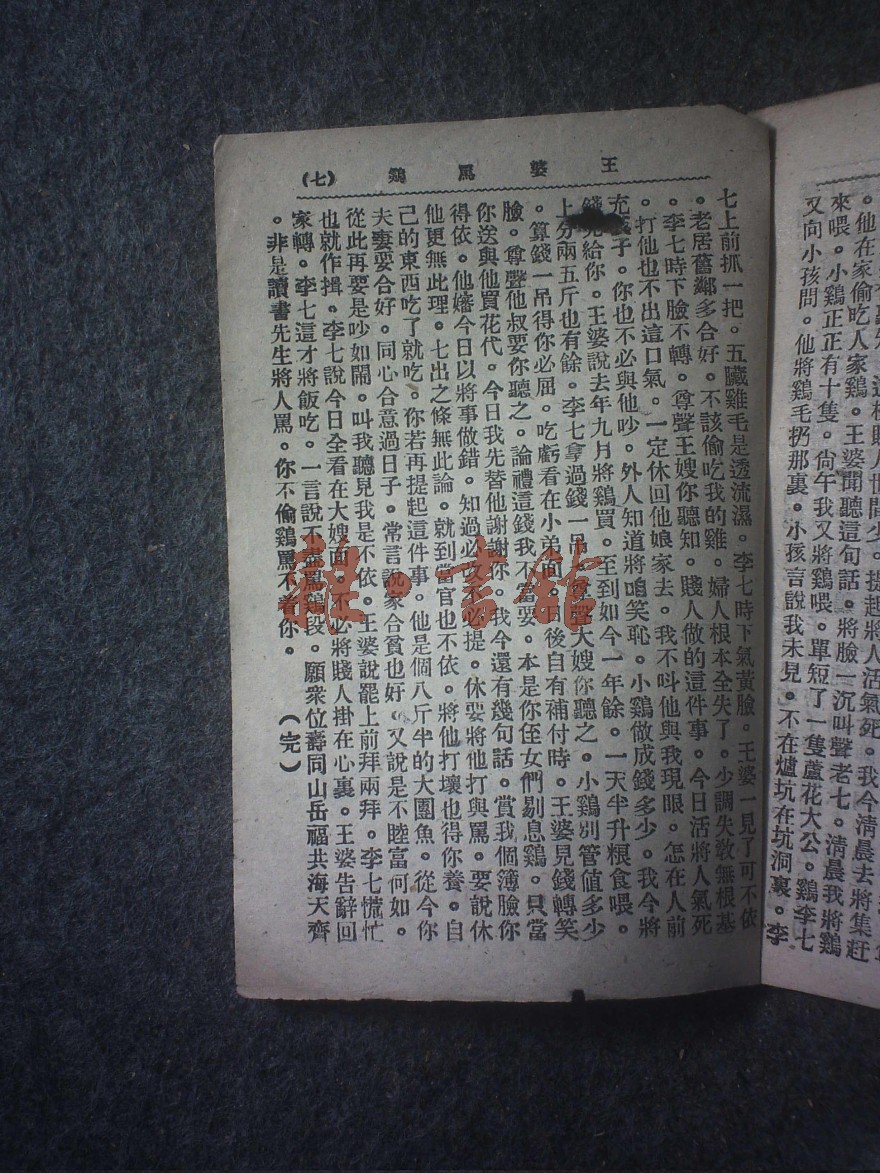 又向小孩問。他將鷄毛扔那裏。小孩言說我未見。不在爐坑在坑洞裏。李
王婆罵鷄 (七)
七上前抓一把。五臟雞毛是透流濕。李七時下氣黃臉。王婆一見了可不依
。老居舊鄰多合好。不該偷吃我的雞。婦人根本全失了。少調失敎無根基
。李七時下臉不轉。尊聲王嫂你聽知。賤人做的這件事。今日活將人氣死
。打他也不出這口氣。一定休回他娘家去。我不呌他與我現眼。怎在人前
充子。你也不必與他吵。外人知道將咱笑恥。小鷄做成錢多少。我今將
錢給你。王婆說去年九月將鷄買。至到如今一年餘。一天半升粮食喂。
上分兩五斤也有餘。李七拿過錢一吊。尊聲大嫂你聽之。小鷄別管值多少
。算錢一吊得你必屈。吃虧看在小弟面。日後自有補付時。王婆見錢轉笑
臉。尊聲他叔要你聽之。論禮這錢我不當要。本是你侄女們剔息鷄。只當
你送與他買花代。今日我先替他謝謝你。我今還有幾句話。賞我個簿臉你
得依。他嬸今日以將事做錯。知過必改不必提。休要將他打與罵。要說休
他更無此理。七出之條無此論。就到當官也不依。將他打壞也得你養。自
己的東西吃了就吃。你若再提起這件事。他是個八斤半的大團魚。從今你
夫妻要合好。同心合意過日子。常言說家合貧也好。又說是不睦富何如。
從此再要是吵如鬧。叫我聽見我是不依。王婆說罷上前拜兩拜。李七慌忙
也就作揖。李七說今日全看在大嫂面。不必將賤人掛在心裏。王婆告辭回
家轉。李七這才將飯吃。一言說不盡罵鷄段。願衆位壽同山岳福共海天齊
。非是讀書先生將人罵。你不偷鷄罵不着你。 (完)
雜·書館